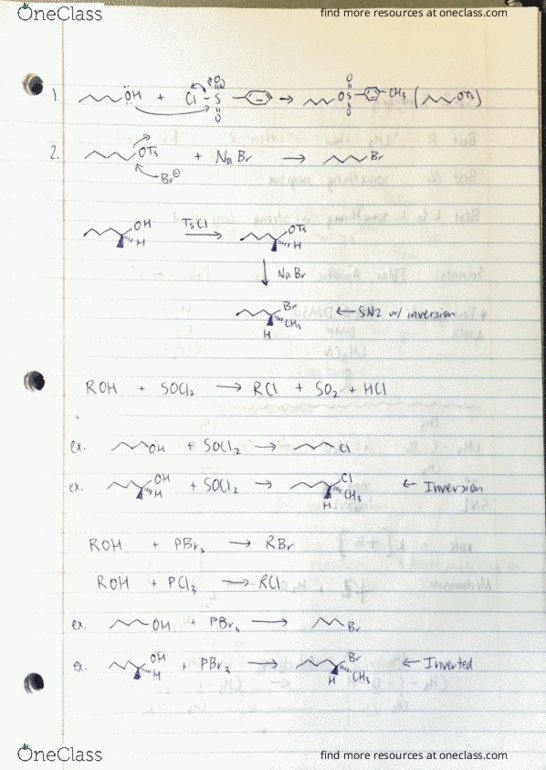 OneClass
find more resources at oneclass.com
1. OH + Cl S O O → OS O O CH₃ ( OTs )
2. OTs + NaBr → Br
Br⊖
OH H TsCl → OTs H
↓ NaBr
Br CH₃ H ← SN2 w/ inversion
ROH + SOCl₂ → RCl + SO₂ + HCl
ex. OH + SOCl₂ → Cl
ex. OH H + SOCl₂ → Cl CH₃ H ← Inversion
ROH + PBr₃ → RBr
ROH + PCl₃ → RCl
ex. OH + PBr₃ → Br
ex. OH H + PBr₃ → Br CH₃ H ← Inverted
OneClass
find more resources at oneclass.com